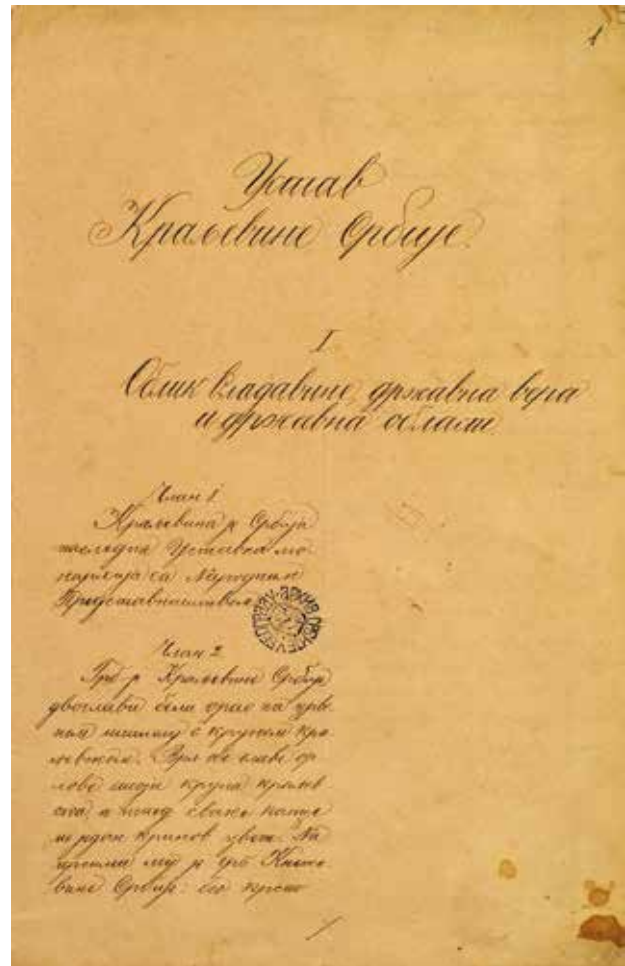 1
Устав
Краљевине Србије.
I
Облик владавине, државна вера
и државна област
Члан 1
Краљевина је Србија
наследна Уставна мо-
нархија са Народним
Представништвом.
Члан 2
Грб је Краљевине Србије
двоглави бели орао на црве-
ном штиту с круном кра-
љевском. Врх обе главе ор-
лове стоји круна краљев-
ска; а испод сваке канџе
по један кринов цвет. На
прсима му је грб Књаже-
вине Србије: бео крст